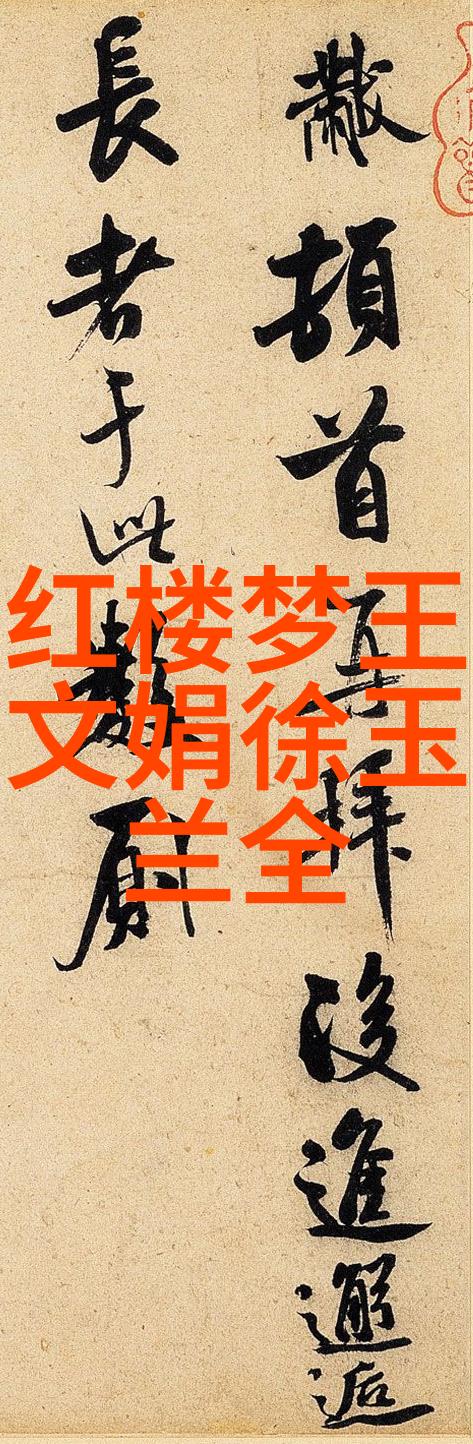 黻頓首再拜後進邂逅
長者于此數厠
红楼梦王
文娟徐玉
兰全